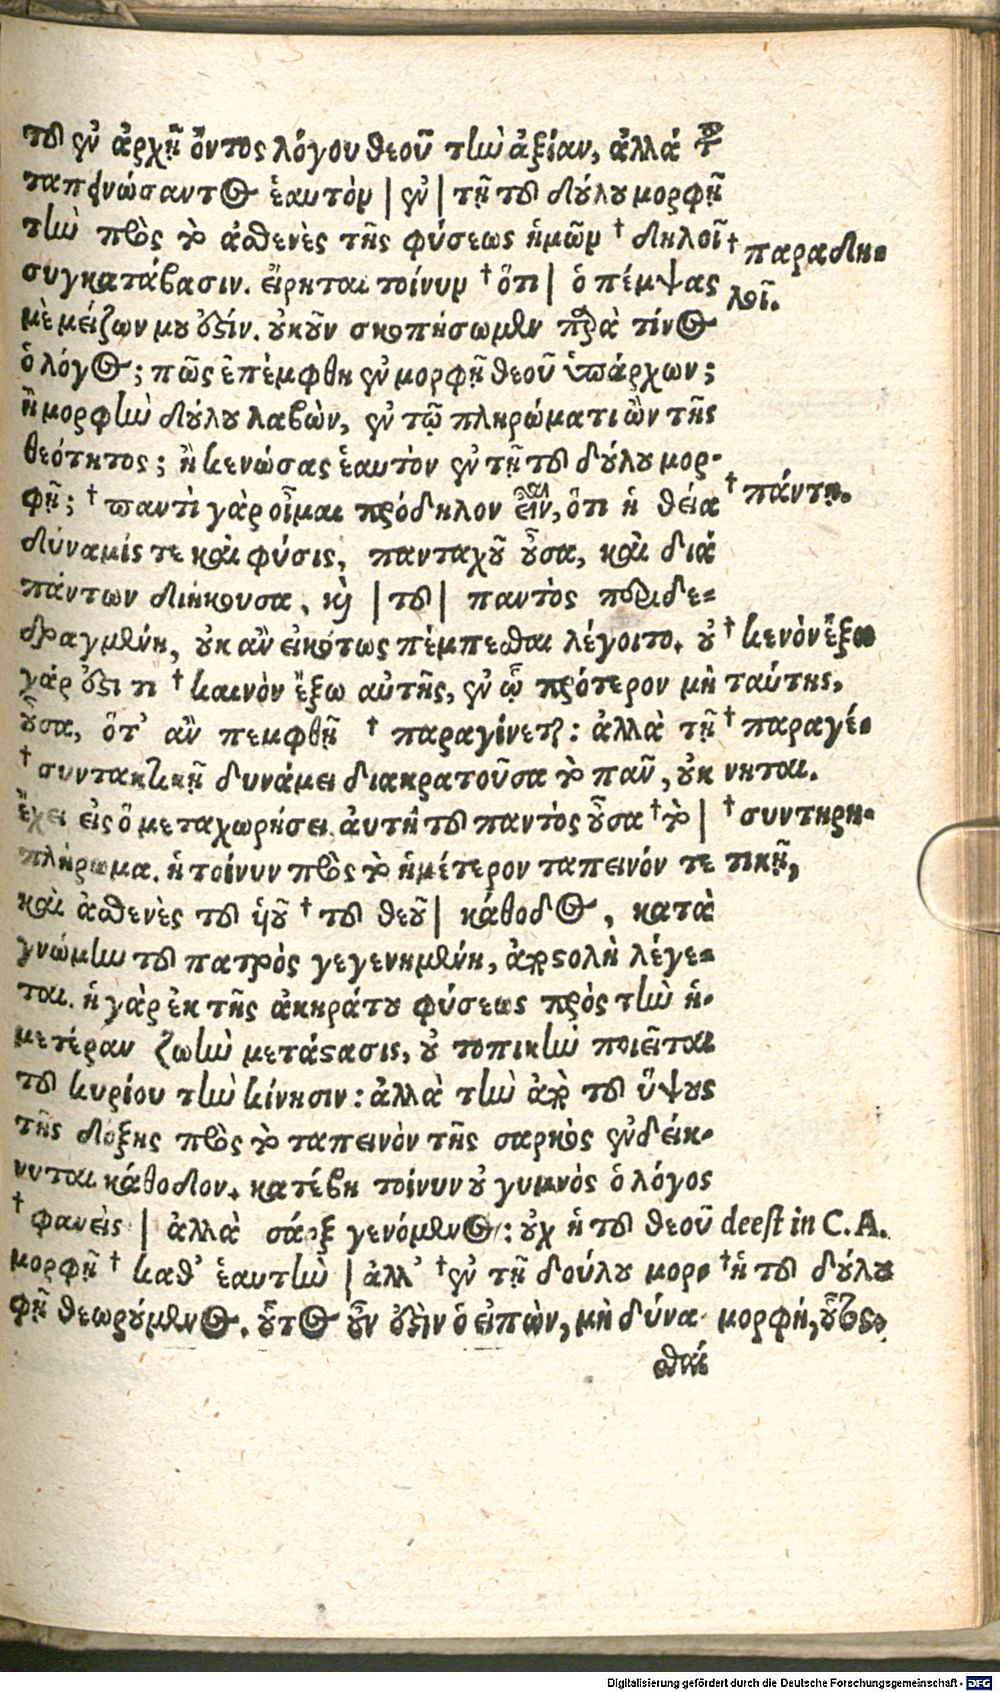 τοῦ ἐν ἀρχῇ ὄντος λόγου θεοῦ τὴν ἀξίαν, ἀλλά τ
ταπεινώσαντος ἑαυτὸν | ἐν | τῇ τοῦ δούλου μορφῇ
τὴν πρὸς τὸ ἀσθενὲς τῆς φύσεως ἡμῶν † δηλοῖ
συγκατάβασιν. εἴρηται τοίνυν † ὅτι | ὁ πέμψας
μὲ μείζων μου ἐστίν. οὐκοῦν σκοπήσωμεν παρὰ τίνος
ὁ λόγος; πῶς ἐπέμφθη ἐν μορφῇ θεοῦ ὑπάρχων;
ἢ μορφὴν δούλου λαβὼν, ἐν τῷ πληρώματι ὢν τῆς
θεότητος; ἢ κενώσας ἑαυτὸν ἐν τῇ τοῦ δούλου μορ-
φῇ; † παντὶ γὰρ οἶμαι πρόδηλον εἶναι, ὅτι ἡ θεία
δύναμίς τε καὶ φύσις, πανταχοῦ οὖσα, καὶ διὰ
πάντων διήκουσα, καὶ | τοῦ | παντὸς περιδε-
δραγμένη, οὐκ ἂν εἰκότως πέμπεσθαι λέγοιτο. οὐ
γάρ ἐστι τι † καινὸν ἔξω αὐτῆς, ἐν ᾧ πρότερον μὴ
οὖσα, ὅτ' ἂν πεμφθῇ † παραγίνεται: ἀλλὰ τῇ
† συντακτικῇ δυνάμει διακρατοῦσα τὸ πᾶν, οὐκ
ἔχει εἰς ὃ μεταχωρήσει αὐτὴ τοῦ παντὸς οὖσα † τὸ |
πλήρωμα. ἡ τοίνυν πρὸς τὸ ἡμέτερον ταπεινόν τε
καὶ ἀσθενὲς τοῦ υἱοῦ † τοῦ θεοῦ | κάθοδος, κατὰ
γνώμην τοῦ πατρὸς γεγενημένη, ἀποστολὴ λέγε-
ται. ἡ γὰρ ἐκ τῆς ἀκηράτου φύσεως πρὸς τὴν ἡ-
μετέραν ζωὴν μετάστασις, οὐ τοπικὴν ποιεῖται
τοῦ κυρίου τὴν κίνησιν: ἀλλὰ τὴν ἀπὸ τοῦ ὕψους
τῆς δόξης πρὸς τὸ ταπεινὸν τῆς σαρκὸς ἐνδείκ-
νυται κάθοδον. κατέβη τοίνυν οὐ γυμνὸς ὁ λόγος
† φανεὶς | ἀλλὰ σάρξ γενόμενος: οὐχ ἡ τοῦ θεοῦ
μορφῇ † καθ' ἑαυτὴν | ἀλλ' † ἐν τῇ δούλου μορ-
φῇ θεωρούμενος. οὗτος οὖν ἐστὶν ὁ εἰπὼν, μὴ δύνα-
σθαί
† παραδη-
λοῖ.
† πάντῃ.
† κενὸν ἔξω
ταύτης,
† παραγέ-
νηται.
† συντηρη-
τικῇ,
deest in C. A.
† ἡ τοῦ δούλου
μορφή, οὗτος.
Digitalisierung gefördert durch die Deutsche Forschungsgemeinschaft - DFG